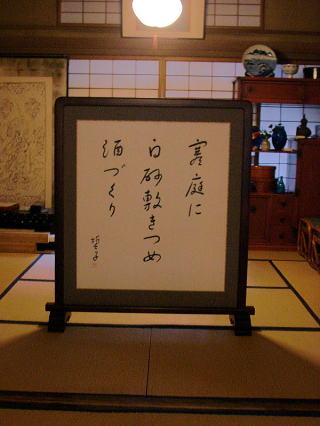 寒庭に
白砂敷きつめ
酒づくり
哲子